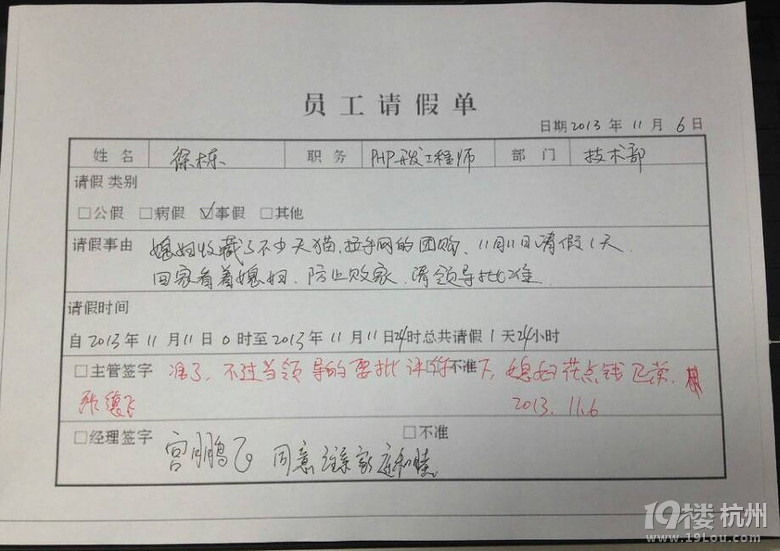 员工请假单
日期 2013 年 11 月 6 日
姓名 徐栋 职务 PHP开发工程师 部门 技术部
请假类别
□公假 □病假 ☑事假 □其他
请假事由 媳妇收藏了不少天猫,拉手网的团购、11月11日请假1天
回家看着媳妇、防止败家、请领导批准
请假时间
自 2013 年 11 月 11 日 0 时至 2013 年 11 月 11 日 24 时总共请假 1 天 24 小时
□主管签字 准了,不过当领导的要批评你 □不准 下,媳妇花点钱
2013.11.6
□经理签字 □不准
宫鹏飞 同意 家庭和睦。
19楼 杭州
www.19lou.com